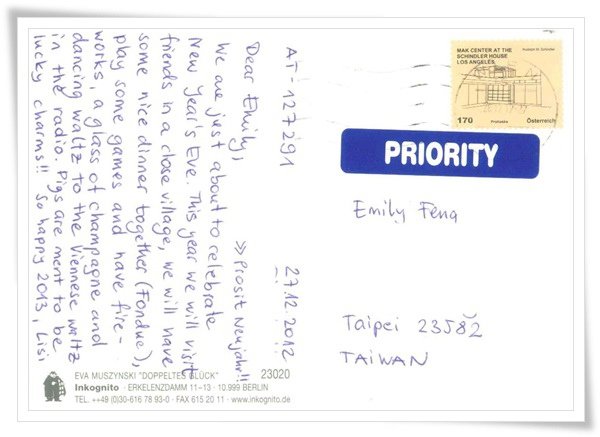 AT-127291 27.12.2012
Dear Emily, >> Prosit Neujahr!!
We are just about to celebrate
New Year's Eve. This year we will visit
friends in a close village, we will have
some nice dinner together (Fondue),
play some games and have fire-
works, a glass of champagne and
dancing waltz to the Viennese waltz
in the radio. Pigs are ment to be
lucky charms!! So happy 2013, Lisi
MAK CENTER AT THE
SCHINDLER HOUSE
LOS ANGELES
Rudolph M. Schindler
170 Österreich
PRIORITY
Emily Feng
Taipei 23582
TAIWAN
EVA MUSZYNSKI "DOPPELTES GLÜCK" 23020
Inkognito · ERKELENZDAMM 11–13 · 10.999 BERLIN
TEL. ++49 (0)30-616 78 93-0 · FAX 615 20 11 · www.inkognito.de